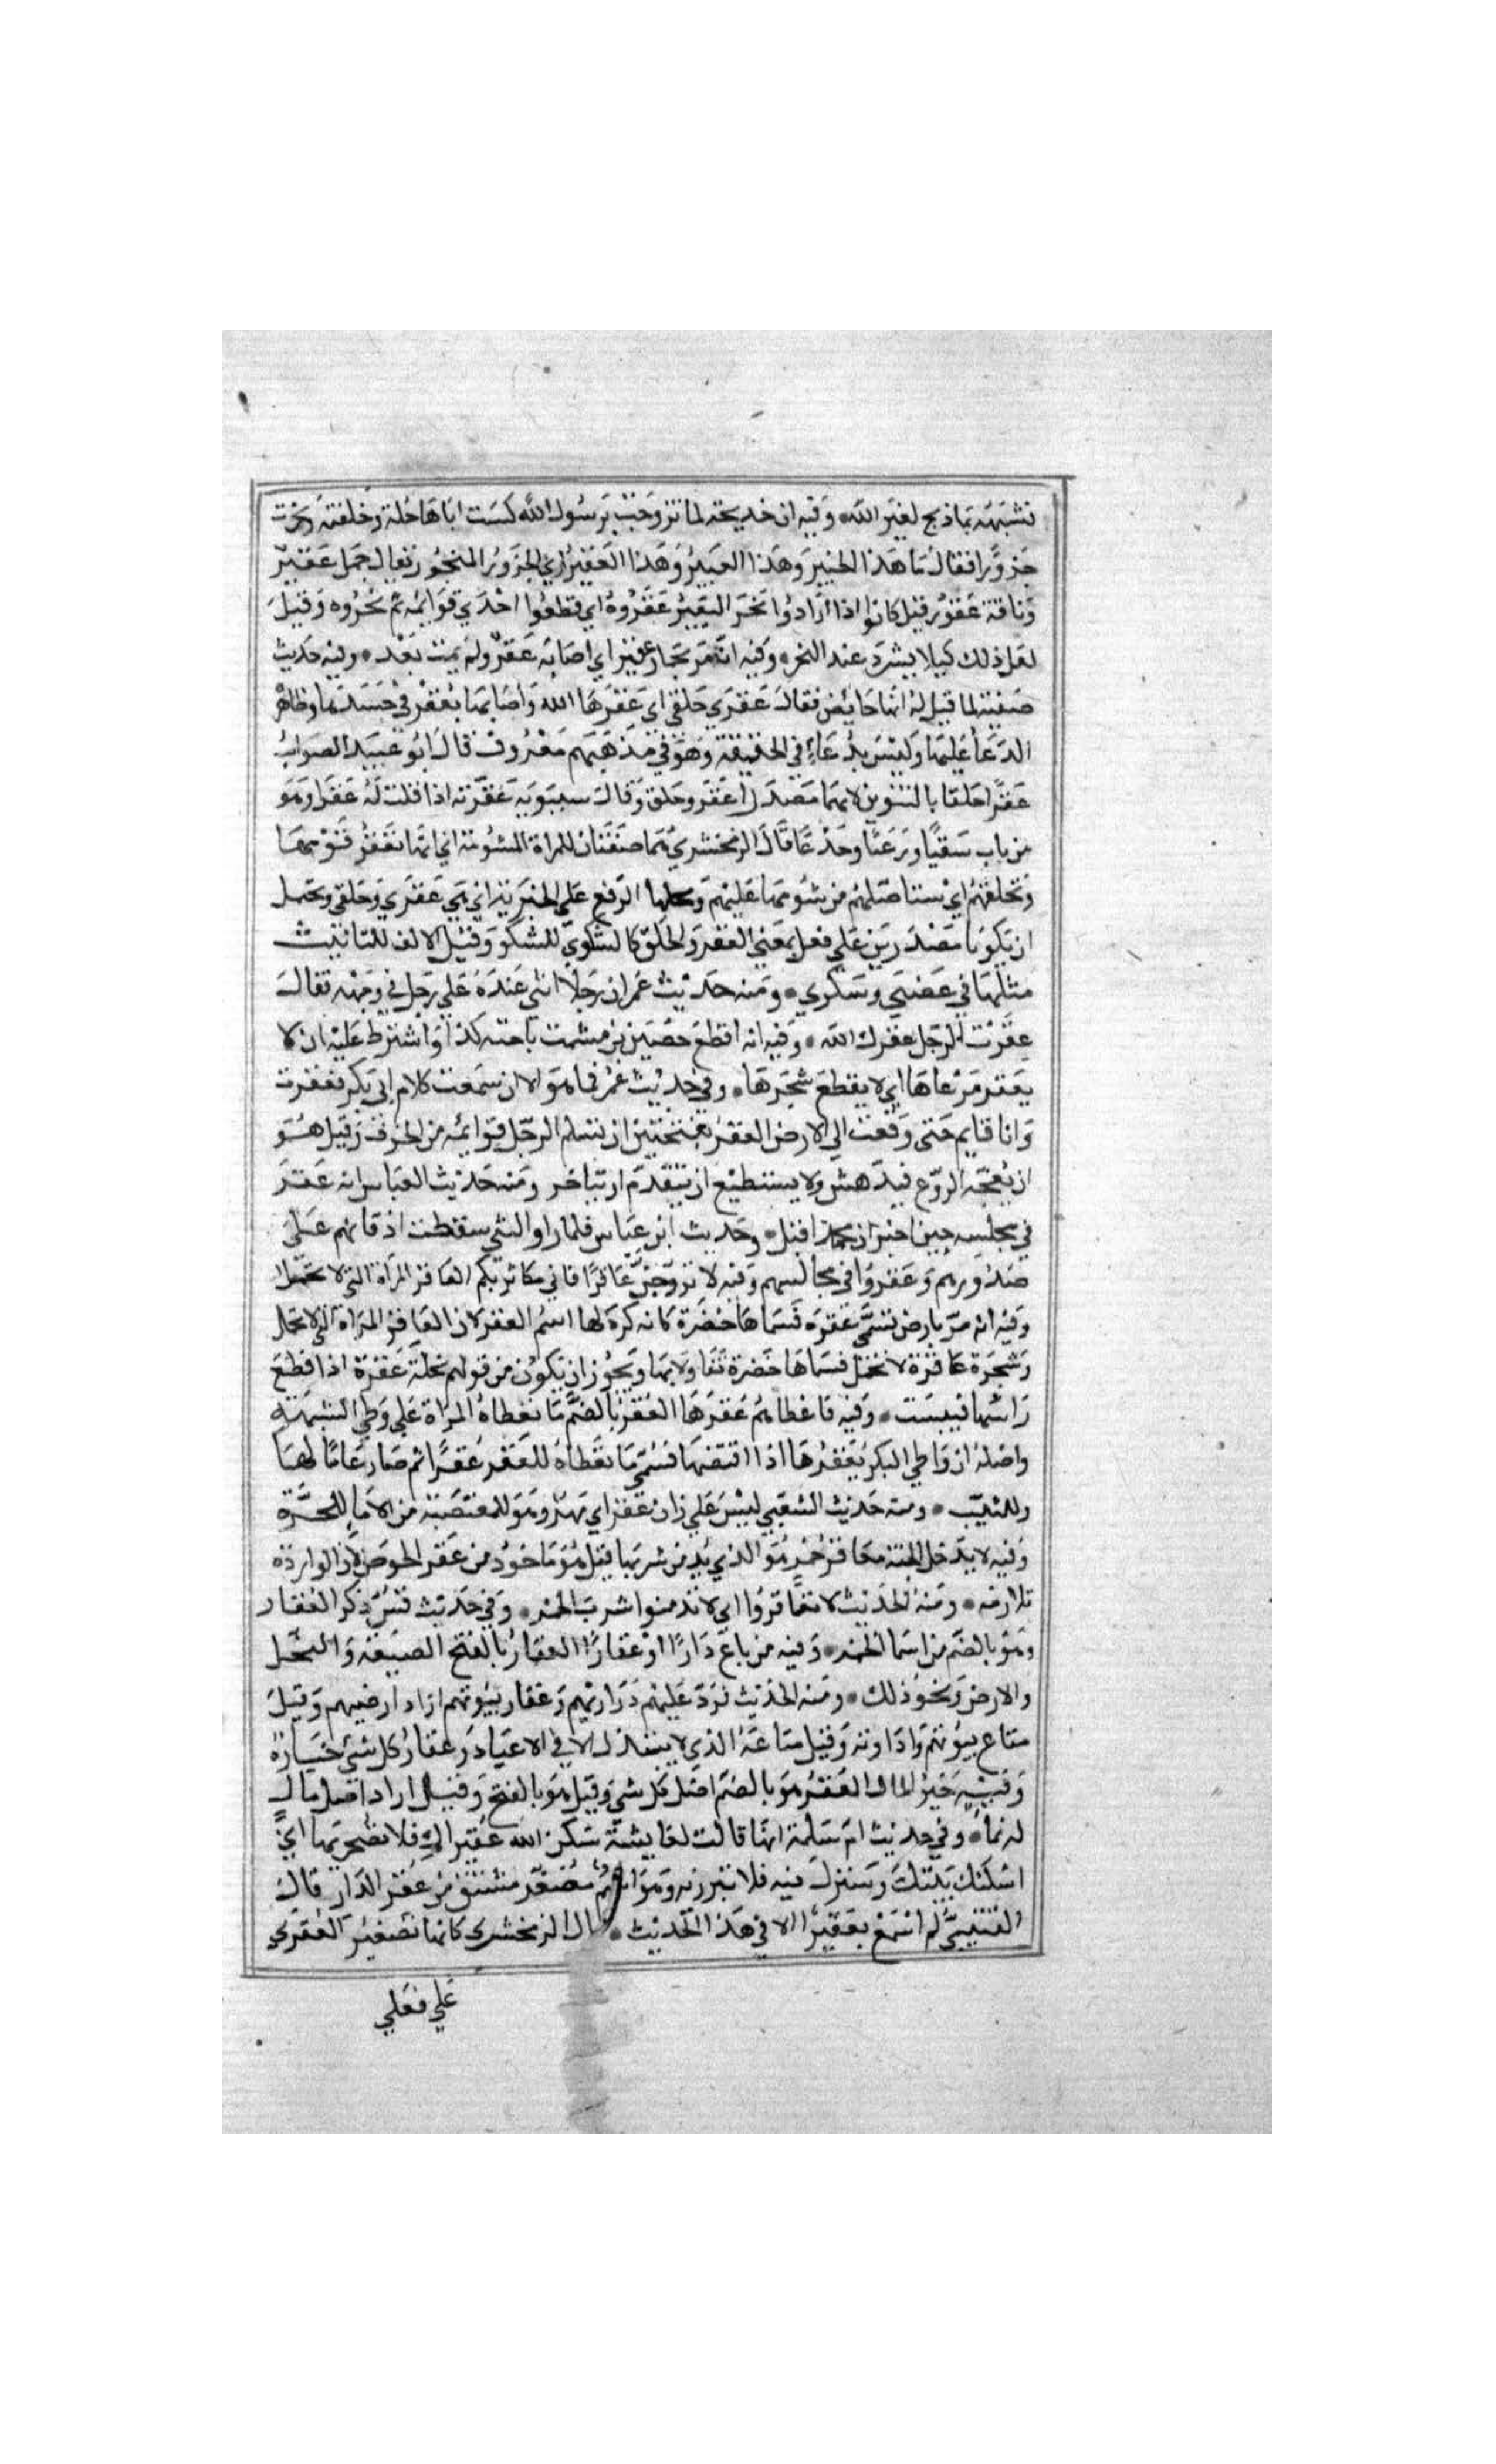 نشبهه بماذبح لغير الله، وفيه ان خديجة لما تزوجت برسول الله كست اباها حلة وخلقته ونحرت
جزورا فقال ما هذا الحبير وهذا العبير وهذا العقير اي الجزور المنحور يقال جمل عقير
وناقة عقير قيل كانوا اذا ارادوا نحر البعير عقروه اي قطعوا احدي قوايمه ثم نحروه وقيل
لعل ذلك كيلا يشرد عند النحر، وفيه انه مر بحمار عقير اي اصابه عقر ولم يمت بعد، وفيه حديث
صفية لما قيل له انها حايض فقال عقري حلقي اي عقرها الله واصابها بعقر في جسدها وظاهر
الدعا عليها وليس بدعاء في الحقيقة وهو في مذهبهم معروف قال ابو عبيد الصواب
عقرا حلقا بالتنوين لانهما مصدرا عقر وحلق وقال سيبويه عقرته اذا قلت له عقرا وهو
من باب سقيا ورعيا وجدعا قال الزمخشري هما صفتان للمراة المشومة اي انها تعقر قومها
وتحلقهم اي تستاصلهم من شومها عليهم ومحلها الرفع علي الخبرية اي هي عقري وحلقي ويحتمل
ان يكونا مصدرين علي فعلى بمعني العقر والحلق كالشكوي للشكو وقيل الالف للتانيث
مثلها في غضبي وسكري، ومنه حديث عمر ان رجلا اثني عنده علي رجل في وجهه فقال
عقرت الرجل عقرك الله، وفيه انه اقطع حصين بن مشمت ناحية كذا واشترط عليه ان لا
يعقر مرعاها اي لا يقطع شجرها، وفي حديث عمر فما هو الا ان سمعت كلام ابي بكر فعقرت
وانا قايم حتى وقعت الي الارض العقر بفتحتين ان تسلم الرجل قوايمه من الخوف وقيل هو
ان يفجئه الروع فيدهش ولا يستطيع ان يتقدم او يتاخر ومنه حديث العباس انه عقر
في مجلسه حين اخبر ان محمدا قتل، وحديث ابن عباس فلما راوا النبي سقطت اذقانهم علي
صدورهم وعقروا في مجالسهم وفيه لا تزوجن عاقرا فاني مكاثر بكم العاقر المراة التي لا تحمل
وفيه انه مر بارض تسمي عقره فسماها خضرة كانه كره لها اسم العقر لان العاقر المراة التي لا تحمل
وشجرة عاقرة لا تحمل فسماها خضرة تفاولا بها ويجوز ان يكون من قولهم نخلة عقرة اذا قطع
راسها فيبست، وفيه فاعطاهم عقرها العقر بالضم ما تعطاه المراة علي وطي الشبهة
واصله ان واطي البكر يعقرها اذا اقتضها فسمي ما تعطاه للعقر عقرا ثم صار عاما لها
وللثيب، ومنه حديث الشعبي ليس علي زان عقر اي مهر وهو للمغتصبة من الاما كالمهر للحرة
وفيه لا يدخل الجنة معاقر خمر هو الذي يدمن شربها قيل هو ماخوذ من عقر الحوض لان الواردة
تلازمه، ومنه الحديث لا تعاقروا اي لا تدمنوا شرب الخمر، وفي حديث قس ذكر العقار
وهو بالضم من اسما الخمر، وفيه من باع دارا او عقارا العقار بالفتح الضيعة والنخل
والارض ونحو ذلك، ومنه الحديث فرد عليهم ذراريهم وعقار بيوتهم اراد ارضيهم وقيل
متاع بيوتهم وادواته وقيل متاعه الذي لا يبتذل الا في الاعياد وعقار كل شي خياره
وفيه خير المال العقر هو بالضم اصل كل شي وقيل هو بالفتح وقيل اراد اصل مال
له نما، وفي حديث ام سلمة انها قالت لعايشة سكن الله عقيراك فلا تصحريها اي
اسكنك بيتك وسترك فيه فلا تبرزيه وهو اسم مصغر مشتق من عقر الدار قال
القتيبي لم اسمع بعقيرا الا في هذا الحديث، قال الزمخشري كانها تصغير العقري
علي فعلي